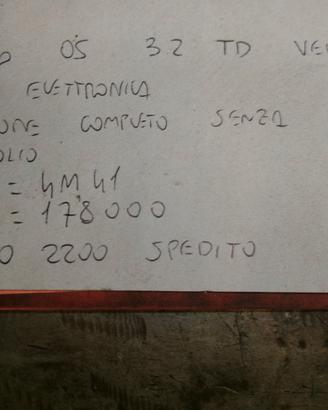 O 05 3.2 TD VE
ELETTRONICA
ONE COMPLETO SENZA
OLIO
= 4M41
= 178000
O 2200 SPEDITO